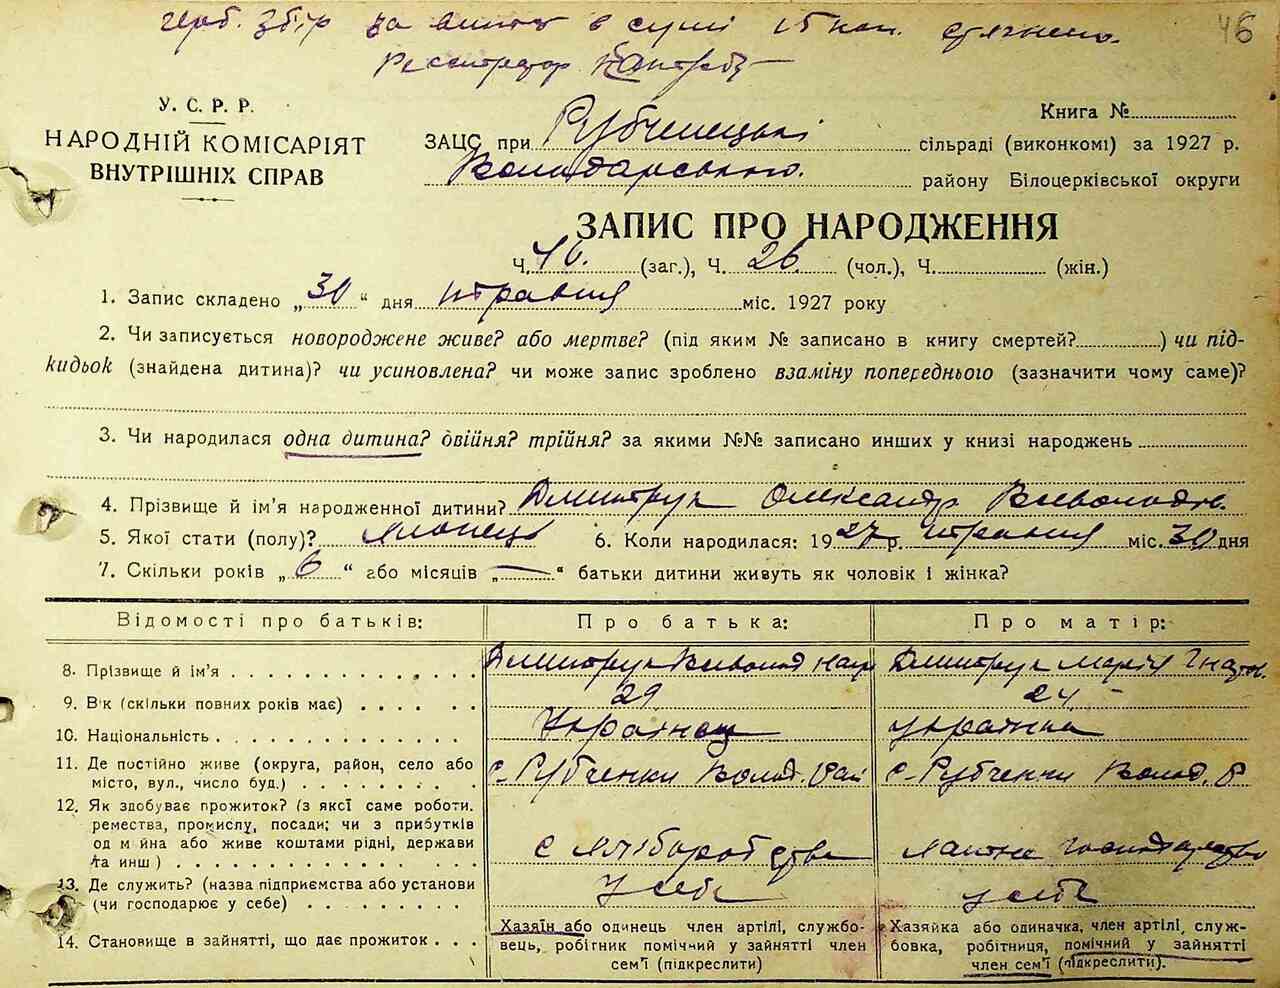 герб. збір за витяг в сумі 15 коп. стягнено.
46
Реєстратор
У. С. Р. Р.
НАРОДНІЙ КОМІСАРІЯТ
ВНУТРІШНІХ СПРАВ
Книга №
ЗАЦС при Рубченецькі сільраді (виконкомі) за 1927 р.
Володарського району Білоцерківської округи
ЗАПИС ПРО НАРОДЖЕННЯ
Ч. 46. (заг.), Ч. 26. (чол.), Ч. (жін.)
1. Запис складено „30“ дня травня міс. 1927 року
2. Чи записується новороджене живе? або мертве? (під яким № записано в книгу смертей? ) чи під-
кидьок (знайдена дитина)? чи усиновлена? чи може запис зроблено взаміну попереднього (зазначити чому саме)?
3. Чи народилася одна дитина? двійня? трійня? за якими №№ записано инших у книзі народжень
4. Прізвище й ім'я народженної дитини? Дмитрук Олександр Всеволодов.
5. Якої стати (полу)? хлопець 6. Коли народилася: 1927 р. травня міс. 30 дня
7. Скільки років „6“ або місяців „—“ батьки дитини живуть як чоловік і жінка?
Відомості про батьків: Про батька: Про матір:
8. Прізвище й ім'я Дмитрук Всеволод Дмитрук Марія Гнатов.
9. Вік (скільки повних років має) 29 24
10. Національність Українець українка
11. Де постійно живе (округа, район, село або
місто, вул., число буд.) с. Рубченки Волод. рай с. Рубченки Волод. р
12. Як здобуває прожиток? (з якої саме роботи.
ремества, промислу, посади; чи з прибутків
од майна або живе коштами рідні, держави
та инш) хліборобство хатнє господарство
13. Де служить? (назва підприємства або установи
(чи господарює у себе) у себе у себе
14. Становище в зайнятті, що дає прожиток
Хазяїн або одинець член артілі, службо-
вець, робігник помічний у зайнятті член
сем'ї (підкреслити)
Хазяйка або одиначка, член артілі, служ-
бовка, робітниця, помічний у зайнятті
член сем'ї (підкреслити).